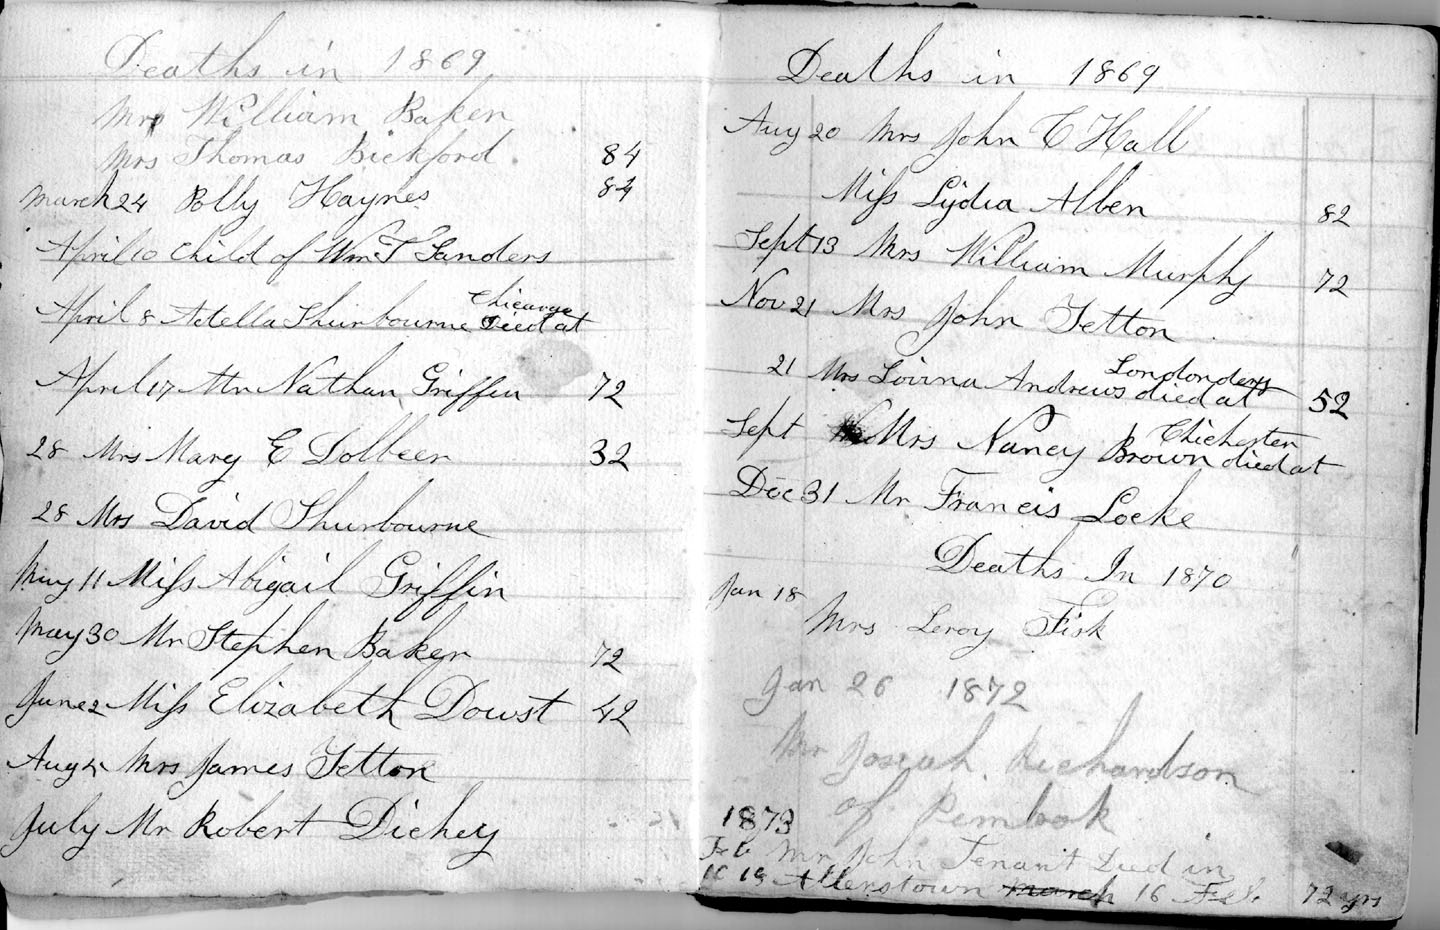 Deaths in 1869
Mrs William Baker
Mrs Thomas Bickford 84
March 24 Polly Haynes 84
April 10 Child of Wm T Sanders
April 8 Adella Shurbourne Died at Chicargo
April 17 Mr Nathan Griffin 72
28 Mrs Mary E Dolbeer 32
28 Mrs David Shurbourne
May 11 Miss Abigail Griffin
May 30 Mr Stephen Baker 72
June 2 Miss Elizabeth Dowst 42
Aug 4 Mrs James Tetton
July Mr Robert Dickey
Deaths in 1869
Aug 20 Mrs John C Hall
Miss Lydia Allen 82
Sept 13 Mrs William Murphy 72
Nov 21 Mrs John Tetton
21 Mrs Lovina Andrews died at Londonderry 52
Sept Mrs Nancy Brown died at Chichester
Dec 31 Mr Francis Locke
Deaths In 1870
Jan 18
Mrs Leroy Fisk
Jan 26 1872
Mr Josiah Richardson
of Pembook
1873
Feb Mr John Tenant Died in
Allenstown March 16 Feb. 72 yrs